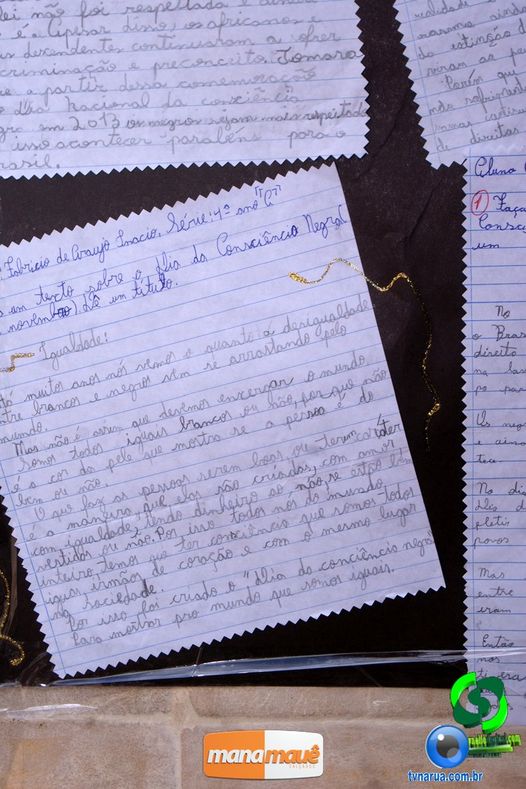 lei não foi respeitada e ainda
e a apesar disso, os africanos e
descendentes continuaram a sofrer
criminação e preconceito. Tomara
que a partir dessa comemoração
o dia nacional da consciência
negra em 2013 os negros sejam mais respeitados
isso acontecer parabéns para o
Brasil.
realidade
mesmo ainda
da
viram as
Porém
não
de direitos
: Fabricio de Araujo Inacio. Série: 4º ano "C"
um texto sobre o Dia da Consciência Negra
novembro) Dê um título.
Igualdade:
Há muitos anos nós vemos o quanto a desigualdade
entre brancos e negros vem se arrastando pelo
mundo.
Mas não é assim que devemos enxergar o mundo.
Somos todos iguais brancos ou não, por que não
é a cor da pele que mostra se a pessoa é do
bem ou não.
O que faz as pessoas serem boas ou terem caráter
é a maneira que elas são criadas, com amor
com igualdade, tendo dinheiro ou não, se estão bem
vestidos ou não. Por isso todos nós do mundo
inteiro temos que ter consciência que somos todos
iguais, irmãos de coração e com o mesmo lugar
na sociedade.
Por isso foi criado o "dia do conciência negra
Para mostrar pro mundo que somos iguais.
Aluno
1 Faça
Consc
um
No
o Bras
direito
na
po
Os neg
e aind
tra
No di
dia d
povos
Mas
entre
eram
Então
nos
tivera
manamauê
CALÇADOS
tvnarua.com.br